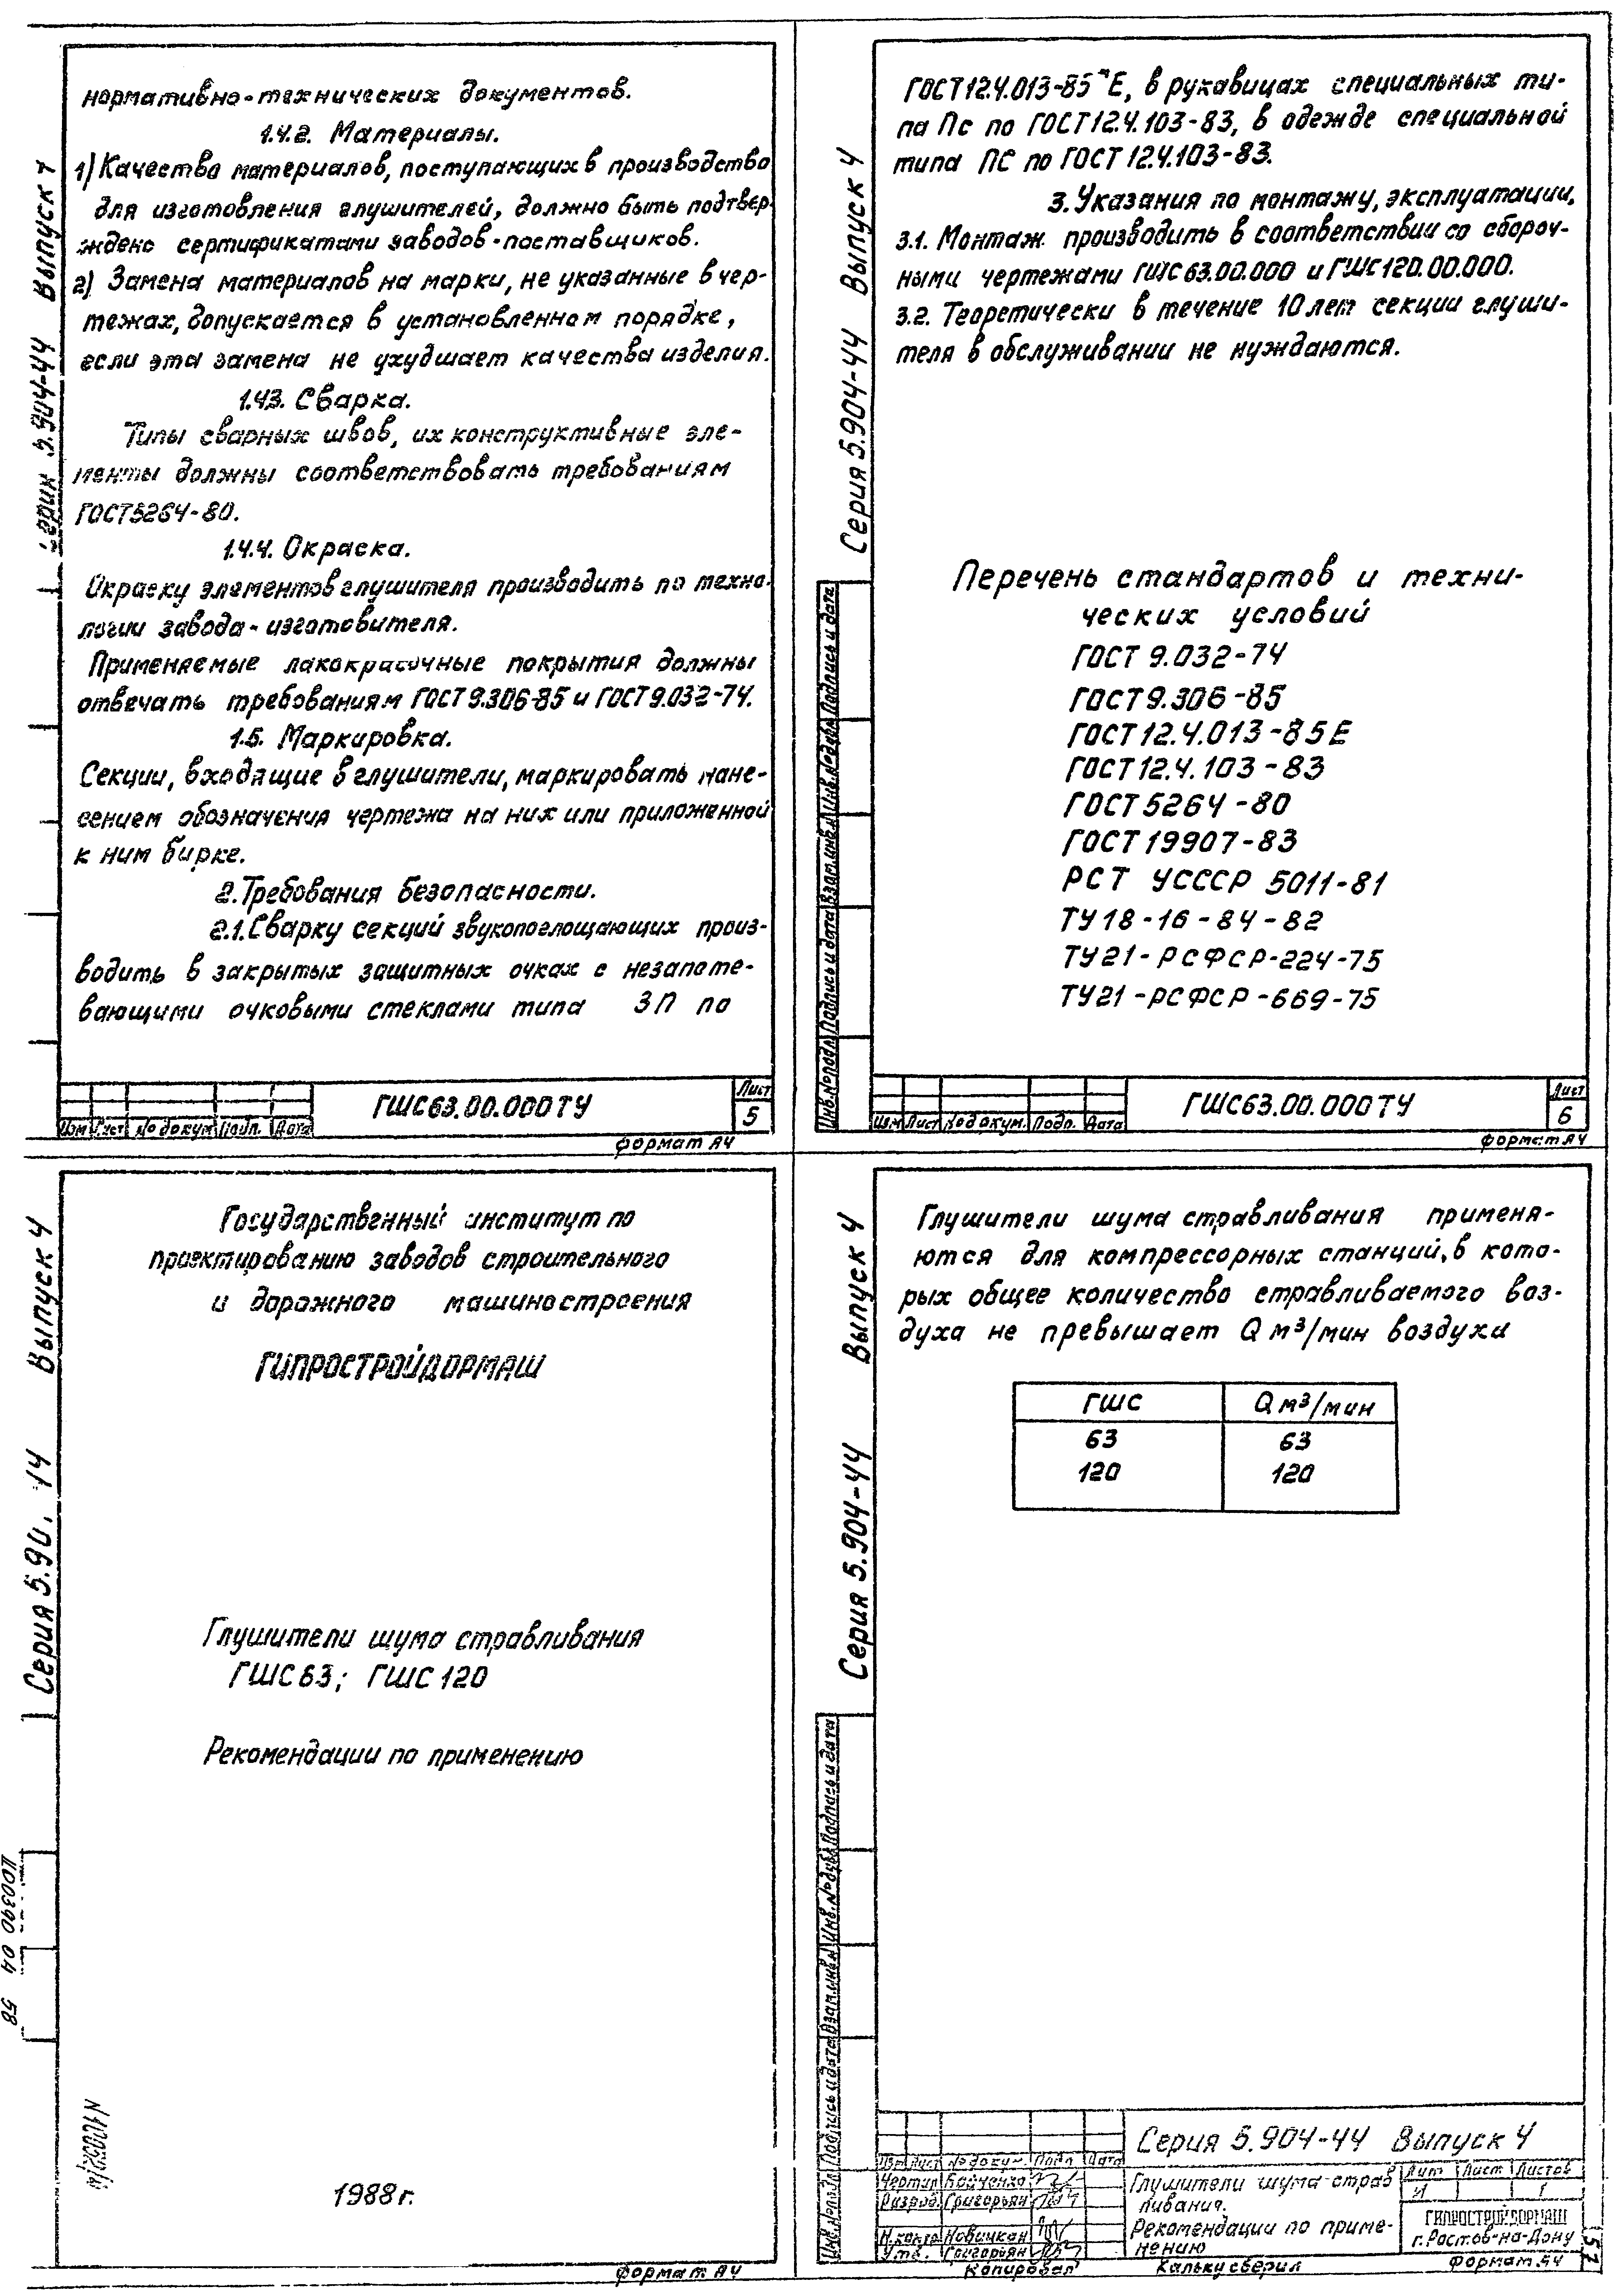 нормативно-технических документов.
1.4.2. Материалы.
1) Качество материалов, поступающих в производство
для изготовления глушителей, должно быть подтвер-
ждено сертификатами заводов-поставщиков.
2) Замена материалов на марки, не указанные в чер-
тежах, допускается в установленном порядке,
если эта замена не ухудшает качества изделия.
1.4.3. Сварка.
Типы сварных швов, их конструктивные эле-
менты должны соответствовать требованиям
ГОСТ 5264-80.
1.4.4. Окраска.
Окраску элементов глушителя производить по техно-
логии завода-изготовителя.
Применяемые лакокрасочные покрытия должны
отвечать требованиям ГОСТ 9.306-85 и ГОСТ 9.032-74.
1.5. Маркировка.
Секции, входящие в глушители, маркировать нане-
сением обозначения чертежа на них или приложенной
к ним бирке.
2. Требования безопасности.
2.1. Сварку секций звукопоглощающих произ-
водить в закрытых защитных очках с незапоте-
вающими очковыми стеклами типа ЗП по
Изм Лист № докум Подп. Дата
ГШС 63.00.000 ТУ
Лист
5
формат А4
Серия 5.904-44 Выпуск 4
ГОСТ 12.4.013-85 Е, в рукавицах специальных ти-
па Пс по ГОСТ 12.4.103-83, в одежде специальной
типа ПС по ГОСТ 12.4.103-83.
3. Указания по монтажу, эксплуатации.
3.1. Монтаж производить в соответствии со сбороч-
ными чертежами ГШС 63.00.000 и ГШС 120.00.000.
3.2. Теоретически в течение 10 лет секции глуши-
теля в обслуживании не нуждаются.
Перечень стандартов и техни-
ческих условий
ГОСТ 9.032-74
ГОСТ 9.306-85
ГОСТ 12.4.013-85 Е
ГОСТ 12.4.103-83
ГОСТ 5264-80
ГОСТ 19907-83
РСТ УСССР 5011-81
ТУ 18-16-84-82
ТУ 21-РСФСР-224-75
ТУ 21-РСФСР-669-75
Изм Лист № докум. Подп. Дата
ГШС 63.00.000 ТУ
Лист
6
формат А4
Серия 5.904-44 Выпуск 4
Инв.№ подл. Подпись и дата Взам.инв.№ Инв.№ дубл. Подпись и дата
Государственный институт по
проектированию заводов строительного
и дорожного машиностроения
ГИПРОСТРОЙДОРМАШ
Глушители шума стравливания
ГШС 63; ГШС 120
Рекомендации по применению
1988 г.
формат А4
Выпуск 4
Ц00390 04 58
Глушители шума стравливания применя-
ются для компрессорных станций, в кото-
рых общее количество стравливаемого воз-
духа не превышает Q м³/мин воздуха
ГШС Q м³/мин
63 63
120 120
Серия 5.904-44 Выпуск 4
Инв.№ подл. Подпись и дата Взам.инв.№ Инв.№ дубл. Подпись и дата
Серия 5.904-44 Выпуск 4
Изм Лист № докум. Подп. Дата
Чертил Бойченко
Разраб. Григорьян
Н.контр Новицкая
Утв. Григорьян
Глушители шума страв
ливания.
Рекомендации по приме-
нению
Лит. Лист Листов
И 1
ГИПРОСТРОЙДОРМАШ
г. Ростов-на-Дону
Копировал Кальку сверил Формат А4
57